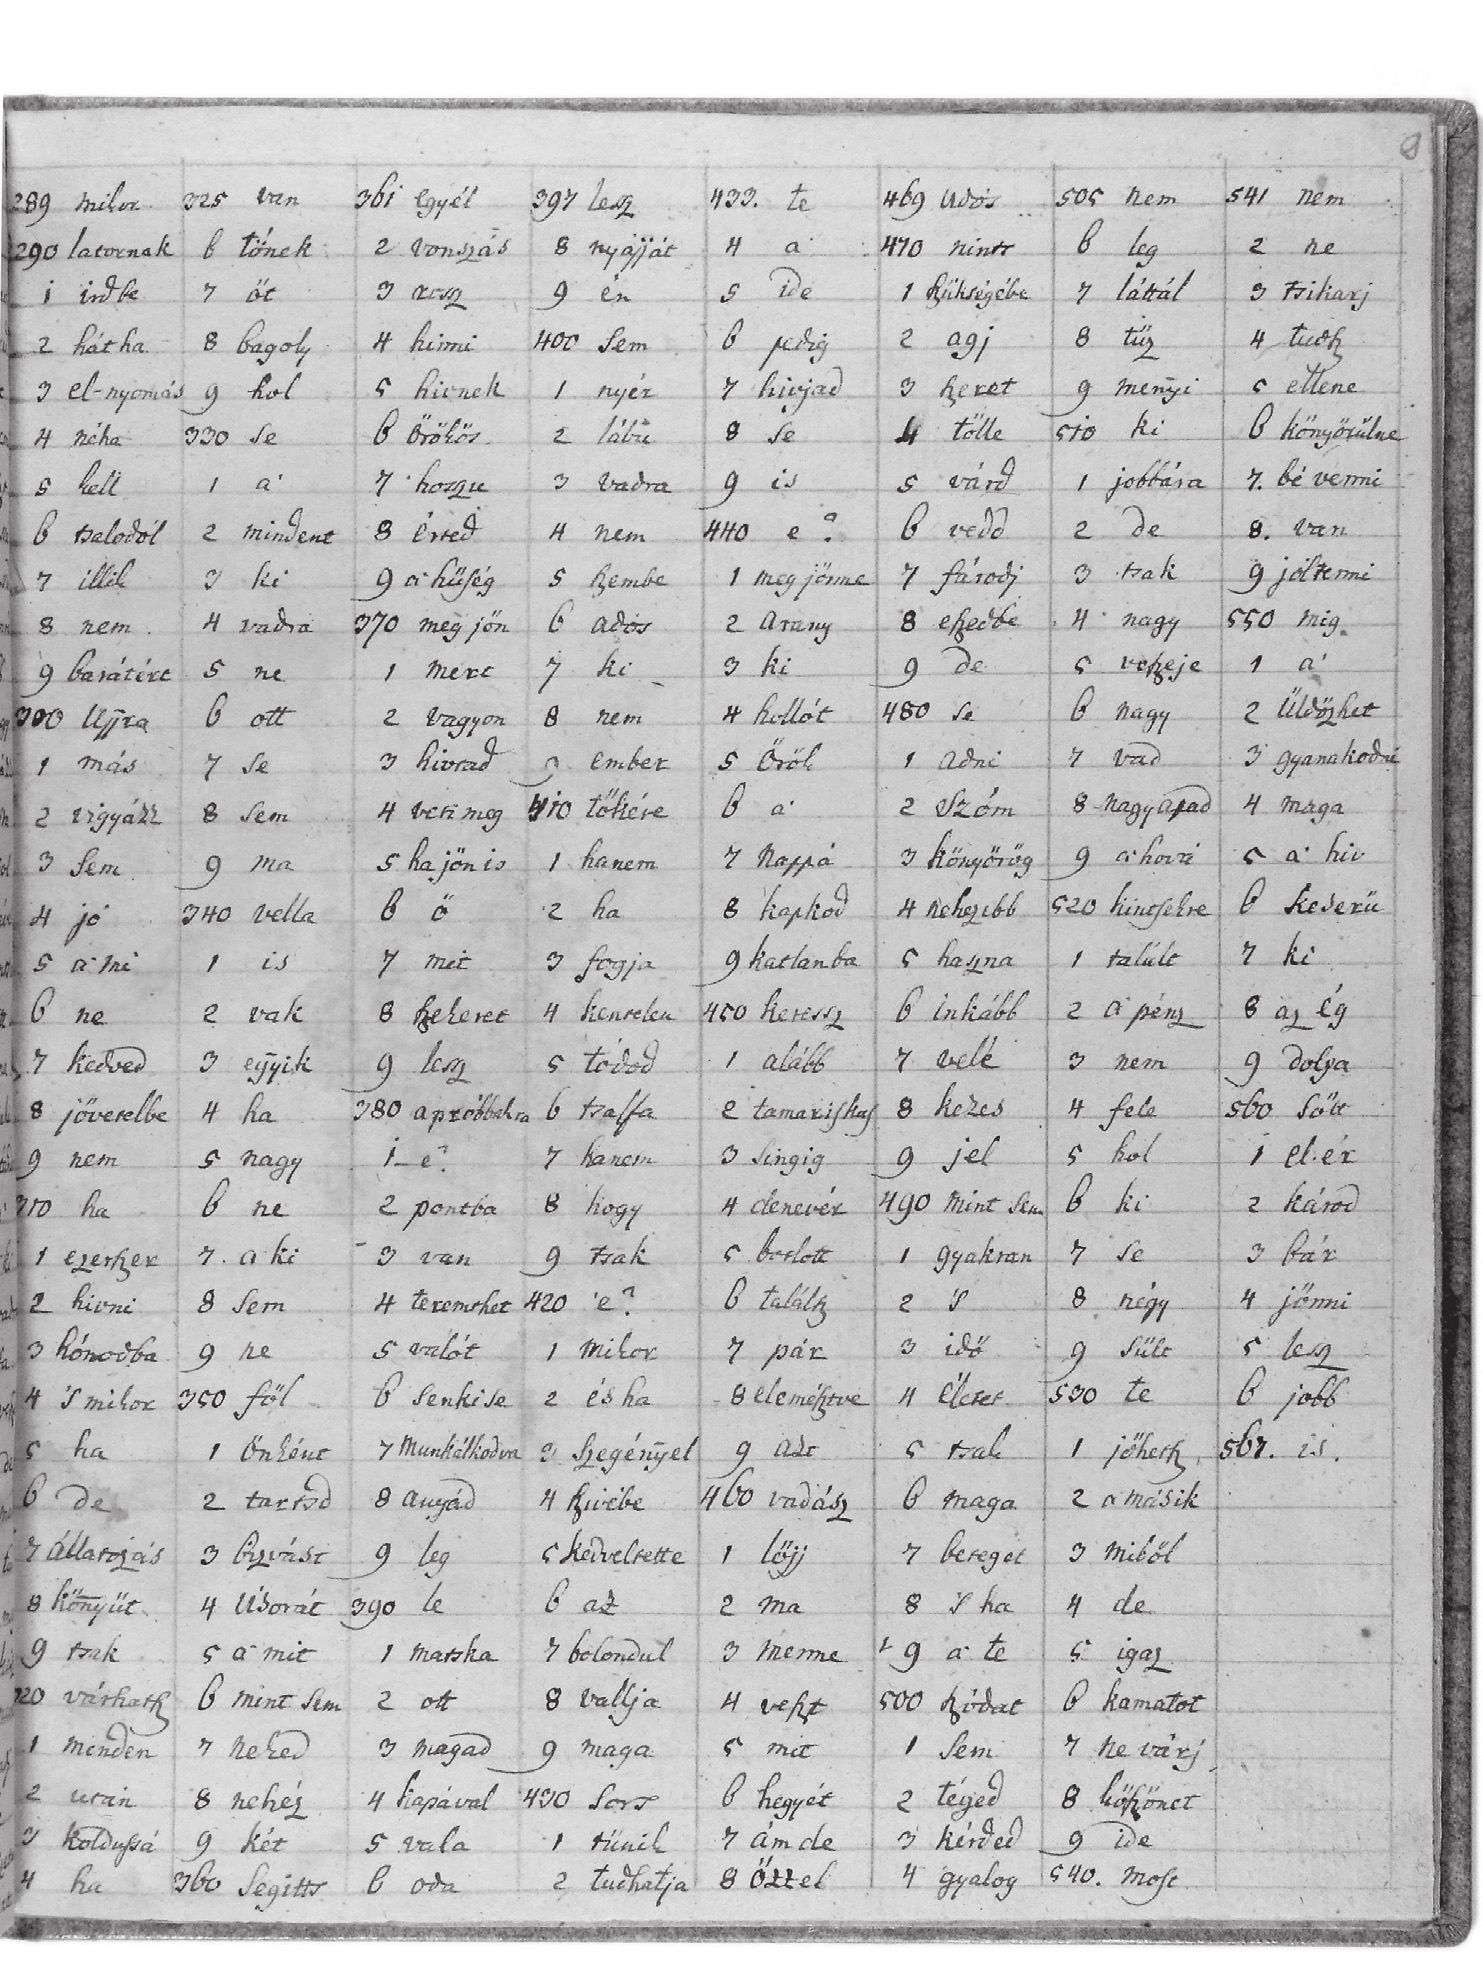 289 mikor 325 van 361 Egyél 397 lesz 433. te 469 Udős 505 nem 541 nem
290 latornak 6 tőnek 2 vonszás 8 nyájját 4 a' 470 nints 6 leg 2 ne
1 irdbe 7 öt 3 rosz 9 én 5 ide 1 szükségébe 7 láttál 3 tsikarj
2 hátha 8 bagoly 4 hinni 400 Sem 6 pedig 2 agj 8 tűz 4 tudsz
3 el-nyomás 9 hol 5 hivnek 1 nyér 7 hivjad 3 szeret 9 menyi 5 ellene
4 néha 330 se 6 Örökös 2 lába 8 se 4 tőlle 510 ki 6 könyörülne
5 kell 1 a' 7 hoszu 3 vadra 9 is 5 várd 1 jobbára 7. bé venni
6 tsalodól 2 mindent 8 érted 4 nem 440 e? 6 vedd 2 de 8. van
7 illik 3 ki 9 a hűség 5 szembe 1 meg jönne 7 fárodj 3 tsak 9 jóltenni
8 nem 4 vadra 370 meg jön 6 adós 2 Arany 8 eszedbe 4 nagy 550 mig
9 barátért 5 ne 1 mert 7 ki 3 ki 9 de 5 vesszeje 1 a'
300 Ujjra 6 ott 2 vagyon 8 nem 4 hollót 480 se 6 nagy 2 Üldözhet
1 más 7 se 3 hivtad 9 ember 5 Öröl 1 adni 7 vad 3 gyanakodni
2 vigyázz 8 sem 4 veri meg 410 tőkére 6 a' 2 Szóm 8 nagy apad 4 maga
3 Sem 9 ma 5 ha jön is 1 hanem 7 Nappá 3 könyörög 9 a' hová 5 a' hiv
4 jó 340 vella 6 ő 2 ha 8 kapkod 4 nehezebb 520 kintsekre 6 keserü
5 a' mi 1 is 7 mit 3 fogja 9 katlanba 5 haszna 1 talált 7 ki
6 ne 2 vak 8 szekeret 4 kentelen 450 keressz 6 inkább 2 a' pénz 8 az ég
7 kedved 3 eggyik 9 lesz 5 tódod 1 alább 7 velé 3 nem 9 dolga
8 jövetelbe 4 ha 380 apróbbakra 6 tsalfa 2 tamariskas 8 kezes 4 fele 560 Sőtt
9 nem 5 nagy 1 -e? 7 hanem 3 singig 9 jel 5 hol 1 el-ér
310 ha 6 ne 2 pontba 8 hogy 4 denevér 490 mint sem 6 ki 2 károd
1 ezerszer 7. a ki 3 van 9 tsak 5 botlott 1 gyakran 7 se 3 bár
2 hivni 8 Sem 4 teremthet 420 'e? 6 találsz 2 'S 8 négy 4 jönni
3 kónodba 9 ne 5 valót 1 mikor 7 pár 3 idő 9 sült 5 lesz
4 's mikor 350 föl 6 senki se 2 és ha 8 elemésztve 4 életet 530 te 6 jobb
5 ha 1 Önként 7 Munkálkodva 3 szegényel 9 azt 5 tsak 1 jöhetsz 567. is.
6 de 2 tartsd 8 anyád 4 szivébe 460 vadász 6 maga 2 a' másik
7 állatozás 3 bizvást 9 leg 5 kedveltette 1 lőjj 7 beteget 3 miből
8 könyüt 4 Usorát 390 le 6 az 2 ma 8 's ha 4 de
9 tsak 5 a' mit 1 matska 7 bolondul 3 menne 9 a' te 5 igaz
320 várhatsz 6 mint sem 2 ott 8 vallja 4 veszt 500 szódat 6 kamatot
1 minden 7 neked 3 magad 9 maga 5 mit 1 sem 7 ne várj
2 után 8 nehéz 4 kapával 430 Sors 6 hegyét 2 téged 8 köszönet
3 koldussá 9 két 5 vala 1 tünik 7 ámde 3 kérded 9 ide
4 ha 360 segitts 6 oda 2 tudhatja 8 Özzel 4 gyalog 540. most